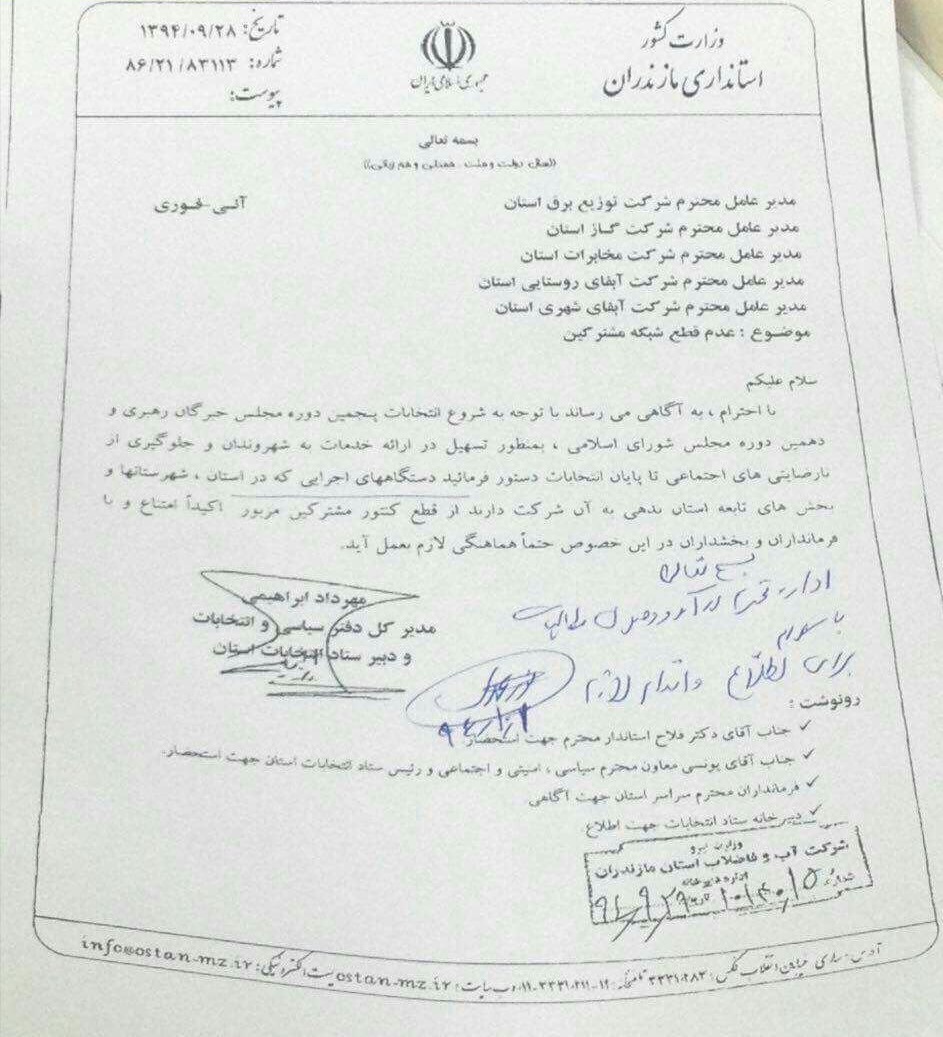 وزارت کشور
استانداری مازندران
جمهوری اسلامی ایران
تاریخ: ۱۳۹۴/۰۹/۲۸
شماره: ۸۶/۲۱/۸۳۱۱۳
پیوست:
بسمه تعالی
((سال دولت و ملت ، همدلی و هم زبانی))
آنی-فوری
مدیر عامل محترم شرکت توزیع برق استان
مدیر عامل محترم شرکت گاز استان
مدیر عامل محترم شرکت مخابرات استان
مدیر عامل محترم شرکت آبفای روستایی استان
مدیر عامل محترم شرکت آبفای شهری استان
موضوع : عدم قطع شبکه مشترکین
سلام علیکم
با احترام ، به آگاهی می رساند با توجه به شروع انتخابات پنجمین دوره مجلس خبرگان رهبری و
دهمین دوره مجلس شورای اسلامی ، بمنظور تسهیل در ارائه خدمات به شهروندان و جلوگیری از
نارضایتی های اجتماعی تا پایان انتخابات دستور فرمائید دستگاههای اجرایی که در استان ، شهرستانها و
بخش های تابعه استان بدهی به آن شرکت دارند از قطع کنتور مشترکین مزبور اکیداً امتناع و با
فرمانداران و بخشداران در این خصوص حتماً هماهنگی لازم بعمل آید.
مهرداد ابراهیمی
مدیر کل دفتر سیاسی و انتخابات
و دبیر ستاد انتخابات استان
بسمه تعالی
اداره درآمد و وصول مطالبات
با سلام
برای اطلاع و اقدام لازم
رونوشت :
✓ جناب آقای دکتر فلاح استاندار محترم جهت استحضار
✓ جناب آقای یونسی معاون محترم سیاسی ، امنیتی و اجتماعی و رئیس ستاد انتخابات استان جهت استحضار.
✓ فرمانداران محترم سراسر استان جهت آگاهی
✓ دبیرخانه ستاد انتخابات جهت اطلاع
وزارت نیرو
شرکت آب و فاضلاب استان مازندران
اداره دبیرخانه
شماره
تاریخ
آدرس: ساری خیابان انقلاب
وب سایت: ostan-mz.ir پست الکترونیکی: info@ostan-mz.ir